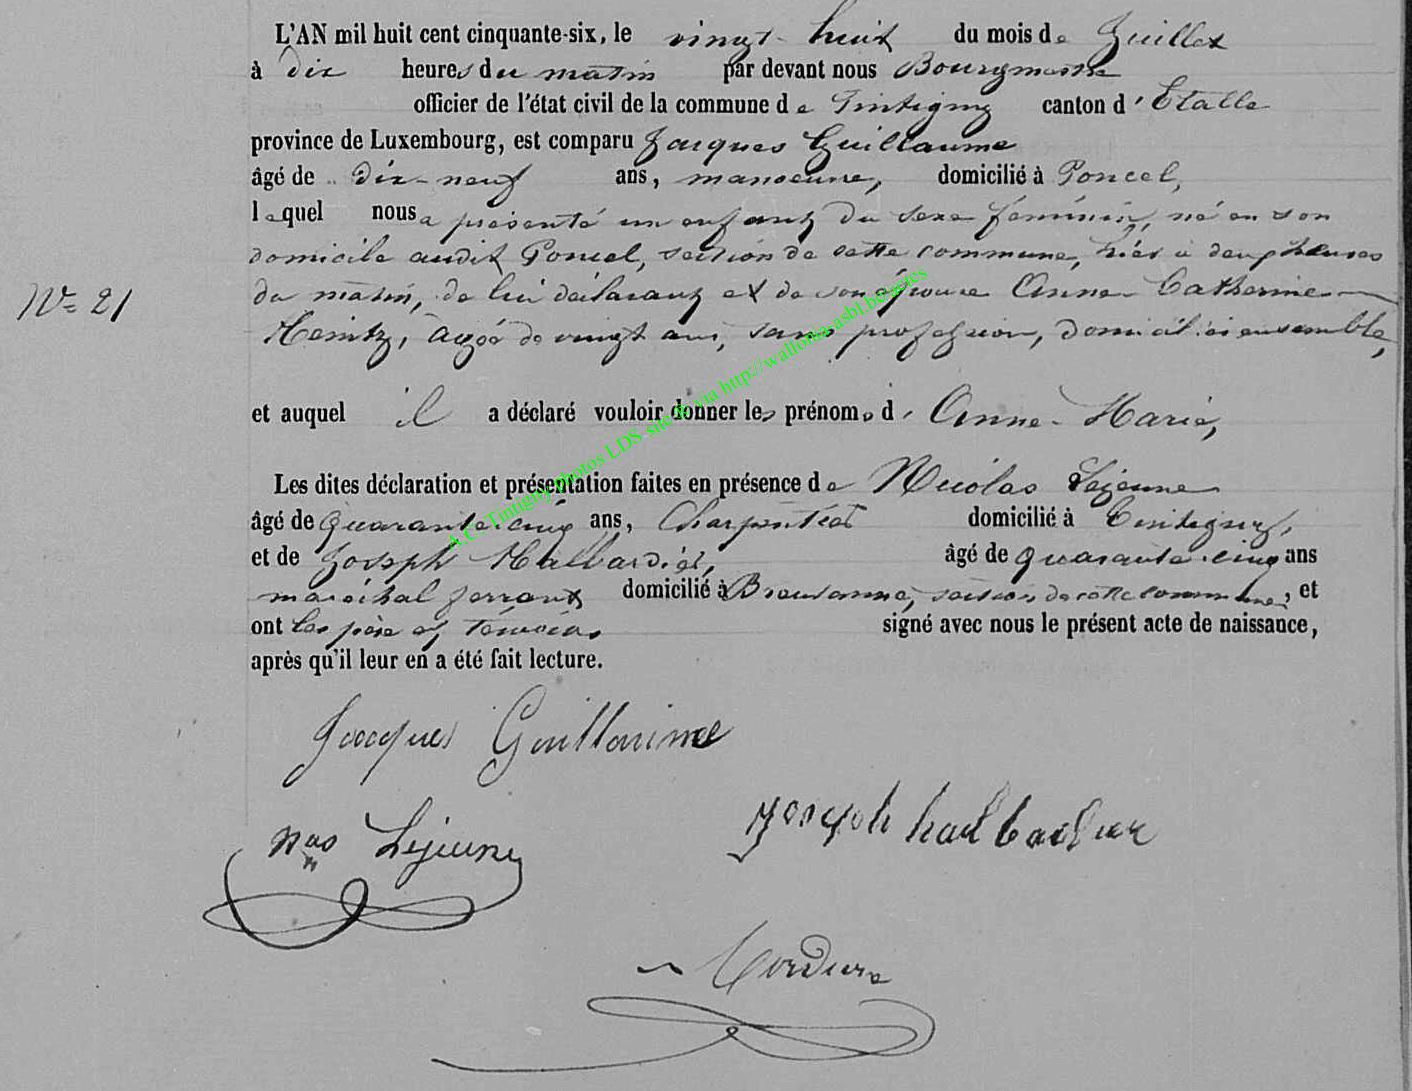 L'AN mil huit cent cinquante-six, le vingt-huit du mois de Juillet
à dix heures du matin par devant nous Bourgmestre
officier de l'état civil de la commune de Tintigny canton d'Etalle
province de Luxembourg, est comparu Jacques Guillaume
âgé de dix-neuf ans, manoeuvre, domicilié à Poncel,
lequel nous a présenté un enfant du sexe féminin, né en son
domicile audit Poncel, section de cette commune, hier à deux heures
N° 21
du matin, de lui déclarant et de son épouse Anne-Catherine
Heintz, agée de vingt ans, sans profession, domiciliés ensemble,
et auquel il a déclaré vouloir donner les prénoms d'Anne-Marie,
Les dites déclaration et présentation faites en présence de Nicolas Lejeune
âgé de quarante-cinq ans, Charpentier domicilié à Tintigny,
et de Joseph Halbardier, âgé de quarante-cinq ans
maréchal ferrant domicilié à Breuvanne, section de cette commune, et
ont les père et témoins signé avec nous le présent acte de naissance,
après qu'il leur en a été fait lecture.
A.C. Tintigny photos LDS site via http://wallonia-asbl.be/actes
Jacques Guillaume
Joseph halbardier
Nas Lejeune